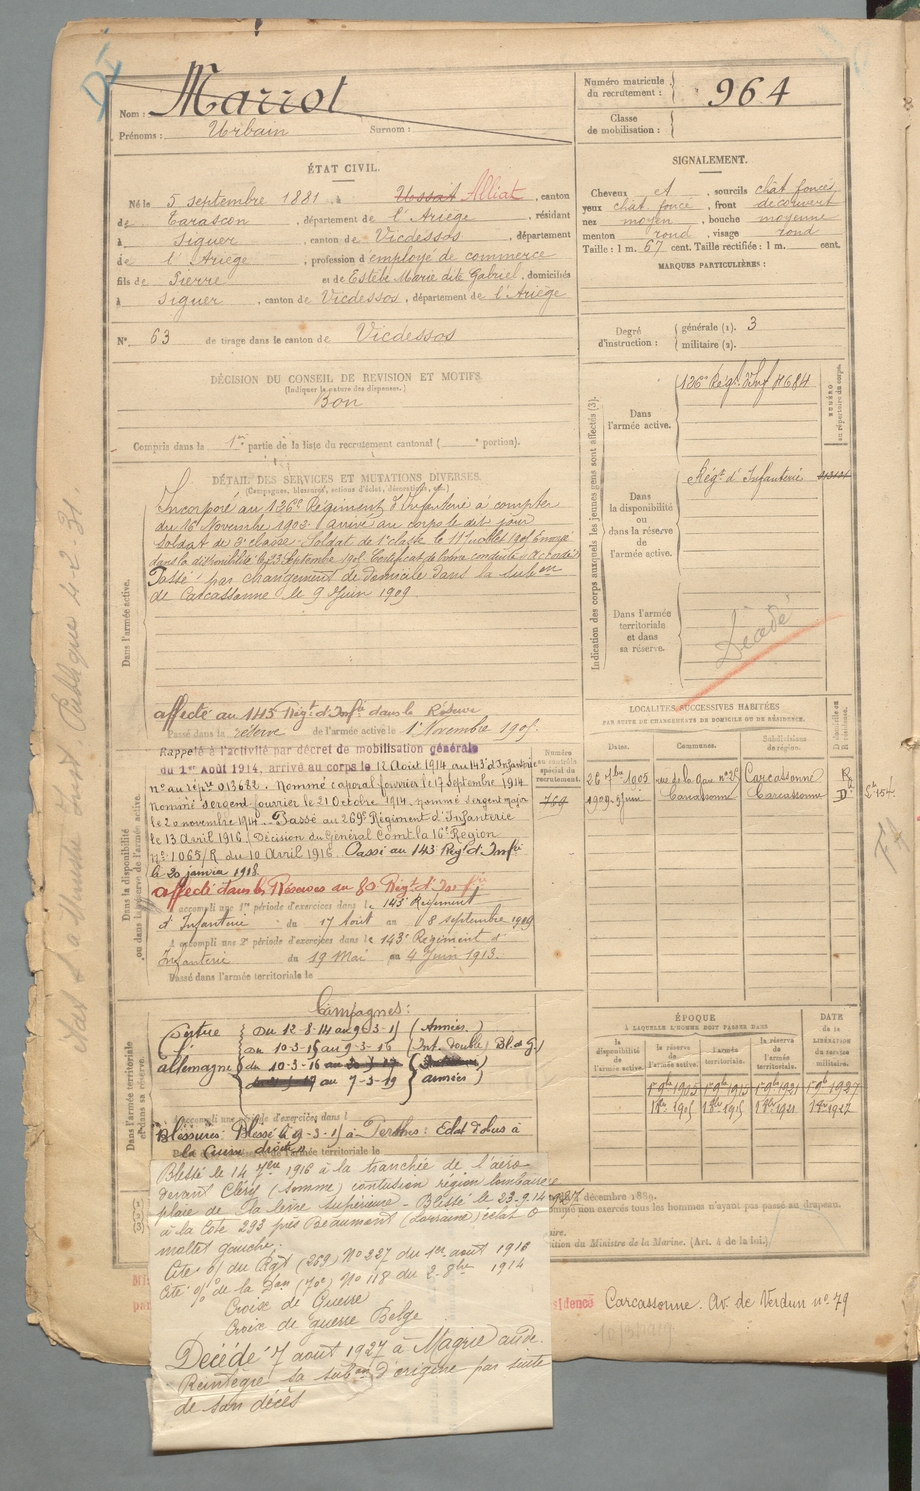 Nom : Marrot
Prénoms : Urbain Surnom :
Numéro matricule du recrutement : 964
Classe de mobilisation :
ÉTAT CIVIL.
Né le 5 septembre 1881, à Ussat Alliat, canton
de Tarascon, département de l'Ariège, résidant
à Siguer, canton de Vicdessos, département
de l'Ariège, profession d'employé de commerce
fils de Pierre et de Estèbe Marie dite Gabriel, domiciliés
à Siguer, canton de Vicdessos, département de l'Ariège
N° 63 de tirage dans le canton de Vicdessos
DÉCISION DU CONSEIL DE REVISION ET MOTIFS
(Indiquer la nature des dispenses.)
Bon
Compris dans la 1re partie de la liste du recrutement cantonal ( e portion).
SIGNALEMENT.
Cheveux et, sourcils chât foncés
yeux chât foncé, front découvert
nez moyen, bouche moyenne
menton rond, visage rond
Taille : 1 m. 67 cent. Taille rectifiée : 1 m. cent.
MARQUES PARTICULIÈRES :
Degré d'instruction : générale (1). 3
militaire (2).
Indication des corps auxquels les jeunes gens sont affectés (3).
Dans l'armée active.
126e Régt d'Inf
NUMÉRO au répertoire du corps.
Dans la disponibilité ou dans la réserve de l'armée active.
Régt d'Infanterie
Dans l'armée territoriale et dans sa réserve.
Décédé
DÉTAIL DES SERVICES ET MUTATIONS DIVERSES.
(Campagnes, blessures, actions d'éclat, décorations, etc.)
Dans l'armée active.
Incorporé au 126e Régiment d'Infanterie à compter
du 16 Novembre 1902 arrivé au corps le dit jour
Soldat de 2e classe. Soldat de 1e classe le 11 Juillet 1905 Envoyé
dans la disponibilité le 23 Septembre 1905 Certificat de bonne conduite "Accordé"
Passé par changement de domicile dans la subon
de Carcassonne le 9 Juin 1909
affecté au 143e Régt d'Infie dans la Réserve
Passé dans la réserve de l'armée active le 1 Novembre 1905
Dans la disponibilité ou dans la réserve de l'armée active.
Rappelé à l'activité par décret de mobilisation générale
du 1er Août 1914, arrivé au corps le 12 Août 1914 au 143e d'Infanterie
n° au répre 013682. Nommé caporal fourrier le 17 Septembre 1914
Nommé sergent-fourrier le 21 Octobre 1914, nommé sergent major
le 20 novembre 1914. Passé au 269e Régiment d'Infanterie
le 13 Avril 1916 (Décision du Général Comt la 16e Région
n° 1065/R du 10 Avril 1916. Passé au 143 Régt d'Infie
le 20 janvier 1918.
affecté dans les Réserves au 80 Régt d'Infie
A accompli une 1re période d'exercices dans le 143e Régiment
d'Infanterie du 17 Août au 8 septembre 1909
A accompli une 2e période d'exercices dans le 143e Régiment d'
Infanterie du 19 Mai au 4 Juin 1913.
Passé dans l'armée territoriale le
Numéro au contrôle spécial du recrutement.
769
LOCALITÉS SUCCESSIVES HABITÉES
PAR SUITE DE CHANGEMENTS DE DOMICILE OU DE RÉSIDENCE.
Dates. Communes. Subdivisions de région. D domicile ou R résidence.
26 7bre 1905 rue de la Gare n° 25 Carcassonne R
1909 9 Juin Carcassonne Carcassonne D
Dans l'armée territoriale et dans sa réserve.
Campagnes :
Contre allemagne
du 12-8-14 au 9-3-15 (Armées.)
du 10-3-15 au 9-3-16 (Int. double) Bl. de G.)
du 10-3-16
au 7-3-19 (armées)
A accompli une période d'exercices dans l
Blessures : Blessé le 9-3-15 à Perthes : Eclat d'obus à
la Cuisse droite
Passé dans la réserve de l'armée territoriale le
ÉPOQUE
À LAQUELLE L'HOMME DOIT PASSER DANS
la disponibilité de l'armée active.
la réserve de l'armée active.
l'armée territoriale.
la réserve de l'armée territoriale.
DATE de la LIBÉRATION du service militaire.
1er 9b 1905 1er 9b 1915 1er 9b 1921 1er 9b 1927
1er 8bre 1905 1er 8bre 1915 1er 8bre 1921 1er 8bre 1927
Blessé le 14 7bre 1916 à la tranchée de l'aéro
devant Cléry (Somme) contusion région lombaire
plaie de la lèvre supérieure - Blessé le 23-9-14
à la Cote 293 près Beaumont (Lorraine) éclat O
mollet gauche.
Cité o/ du Rgt (269) N° 227 du 1er août 1916
Cité o/ de la Don (70e) N° 118 du 2-8bre 1914
Croix de Guerre
Croix de guerre Belge
Décédé 7 aout 1927 à Magrie aude.
Réintègre sa subon d'origine par suite
de son décès
décembre 1889.
mme non exercés tous les hommes n'ayant pas passé au drapeau.
ition du Ministre de la Marine. (Art. 4 de la loi.)
idence Carcassonne. Av. de Verdun n° 79